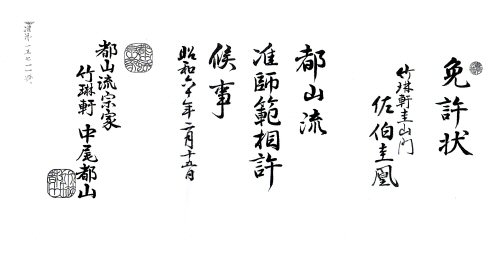 免許状
竹琳軒圭山門
佐伯圭凰
都山流
准師範相許
候事
昭和六十年二月十五日
都山流宗家
竹琳軒 中尾都山